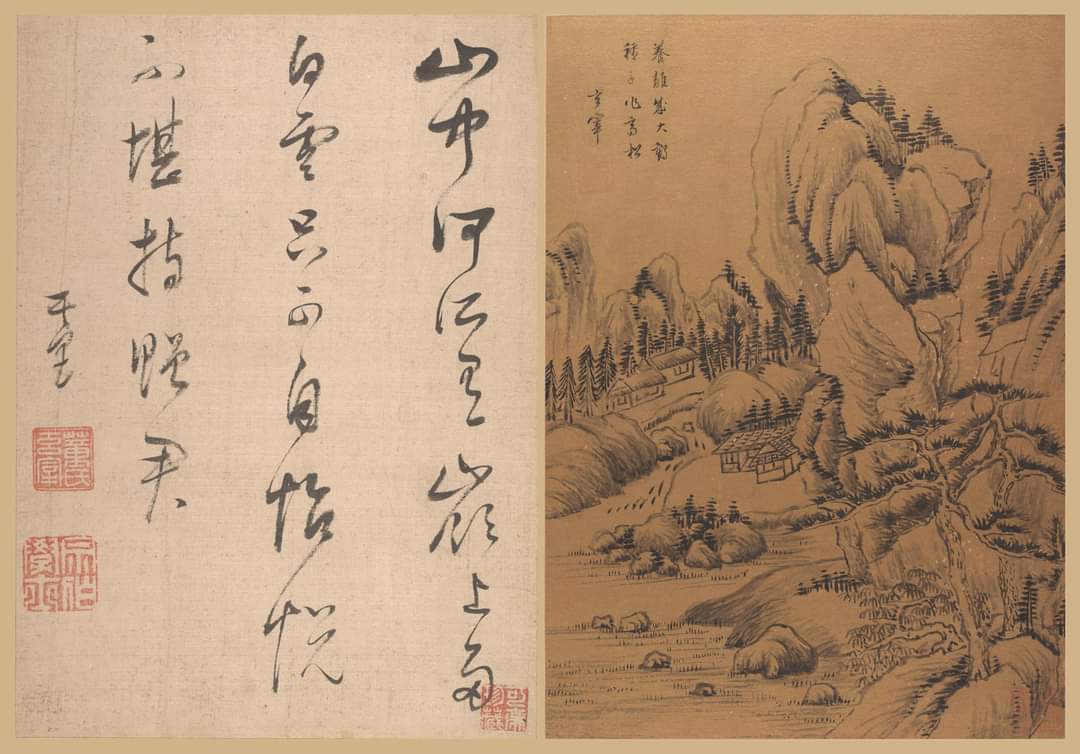 山中何所有嶺上多
白雲只可自怡悅
不堪持贈君
玄宰
董氏玄宰
宗伯學士
養雛成大鶴
種子作高松
玄宰